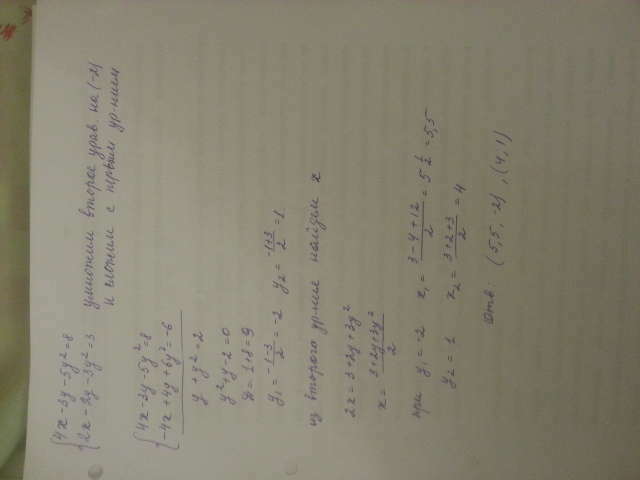 {4x-3y-5y²=8
{2x-2y-3y²=3
умножим второе урав. на (-2)
и сложим с первым ур-нием
{4x-3y-5y²=8
{-4x+4y+6y²=-6
y+y²=2
y²+y-2=0
D=1+8=9
y₁=(-1-3)/2=-2 y₂=(-1+3)/2=1
из второго ур-ния найдем x
2x=3+2y+3y²
x=(3+2y+3y²)/2
при y₁=-2 x₁=(3-4+12)/2=5 1/2=5,5
y₂=1 x₂=(3+2+3)/2=4
Отв: (5,5, -2), (4, 1)